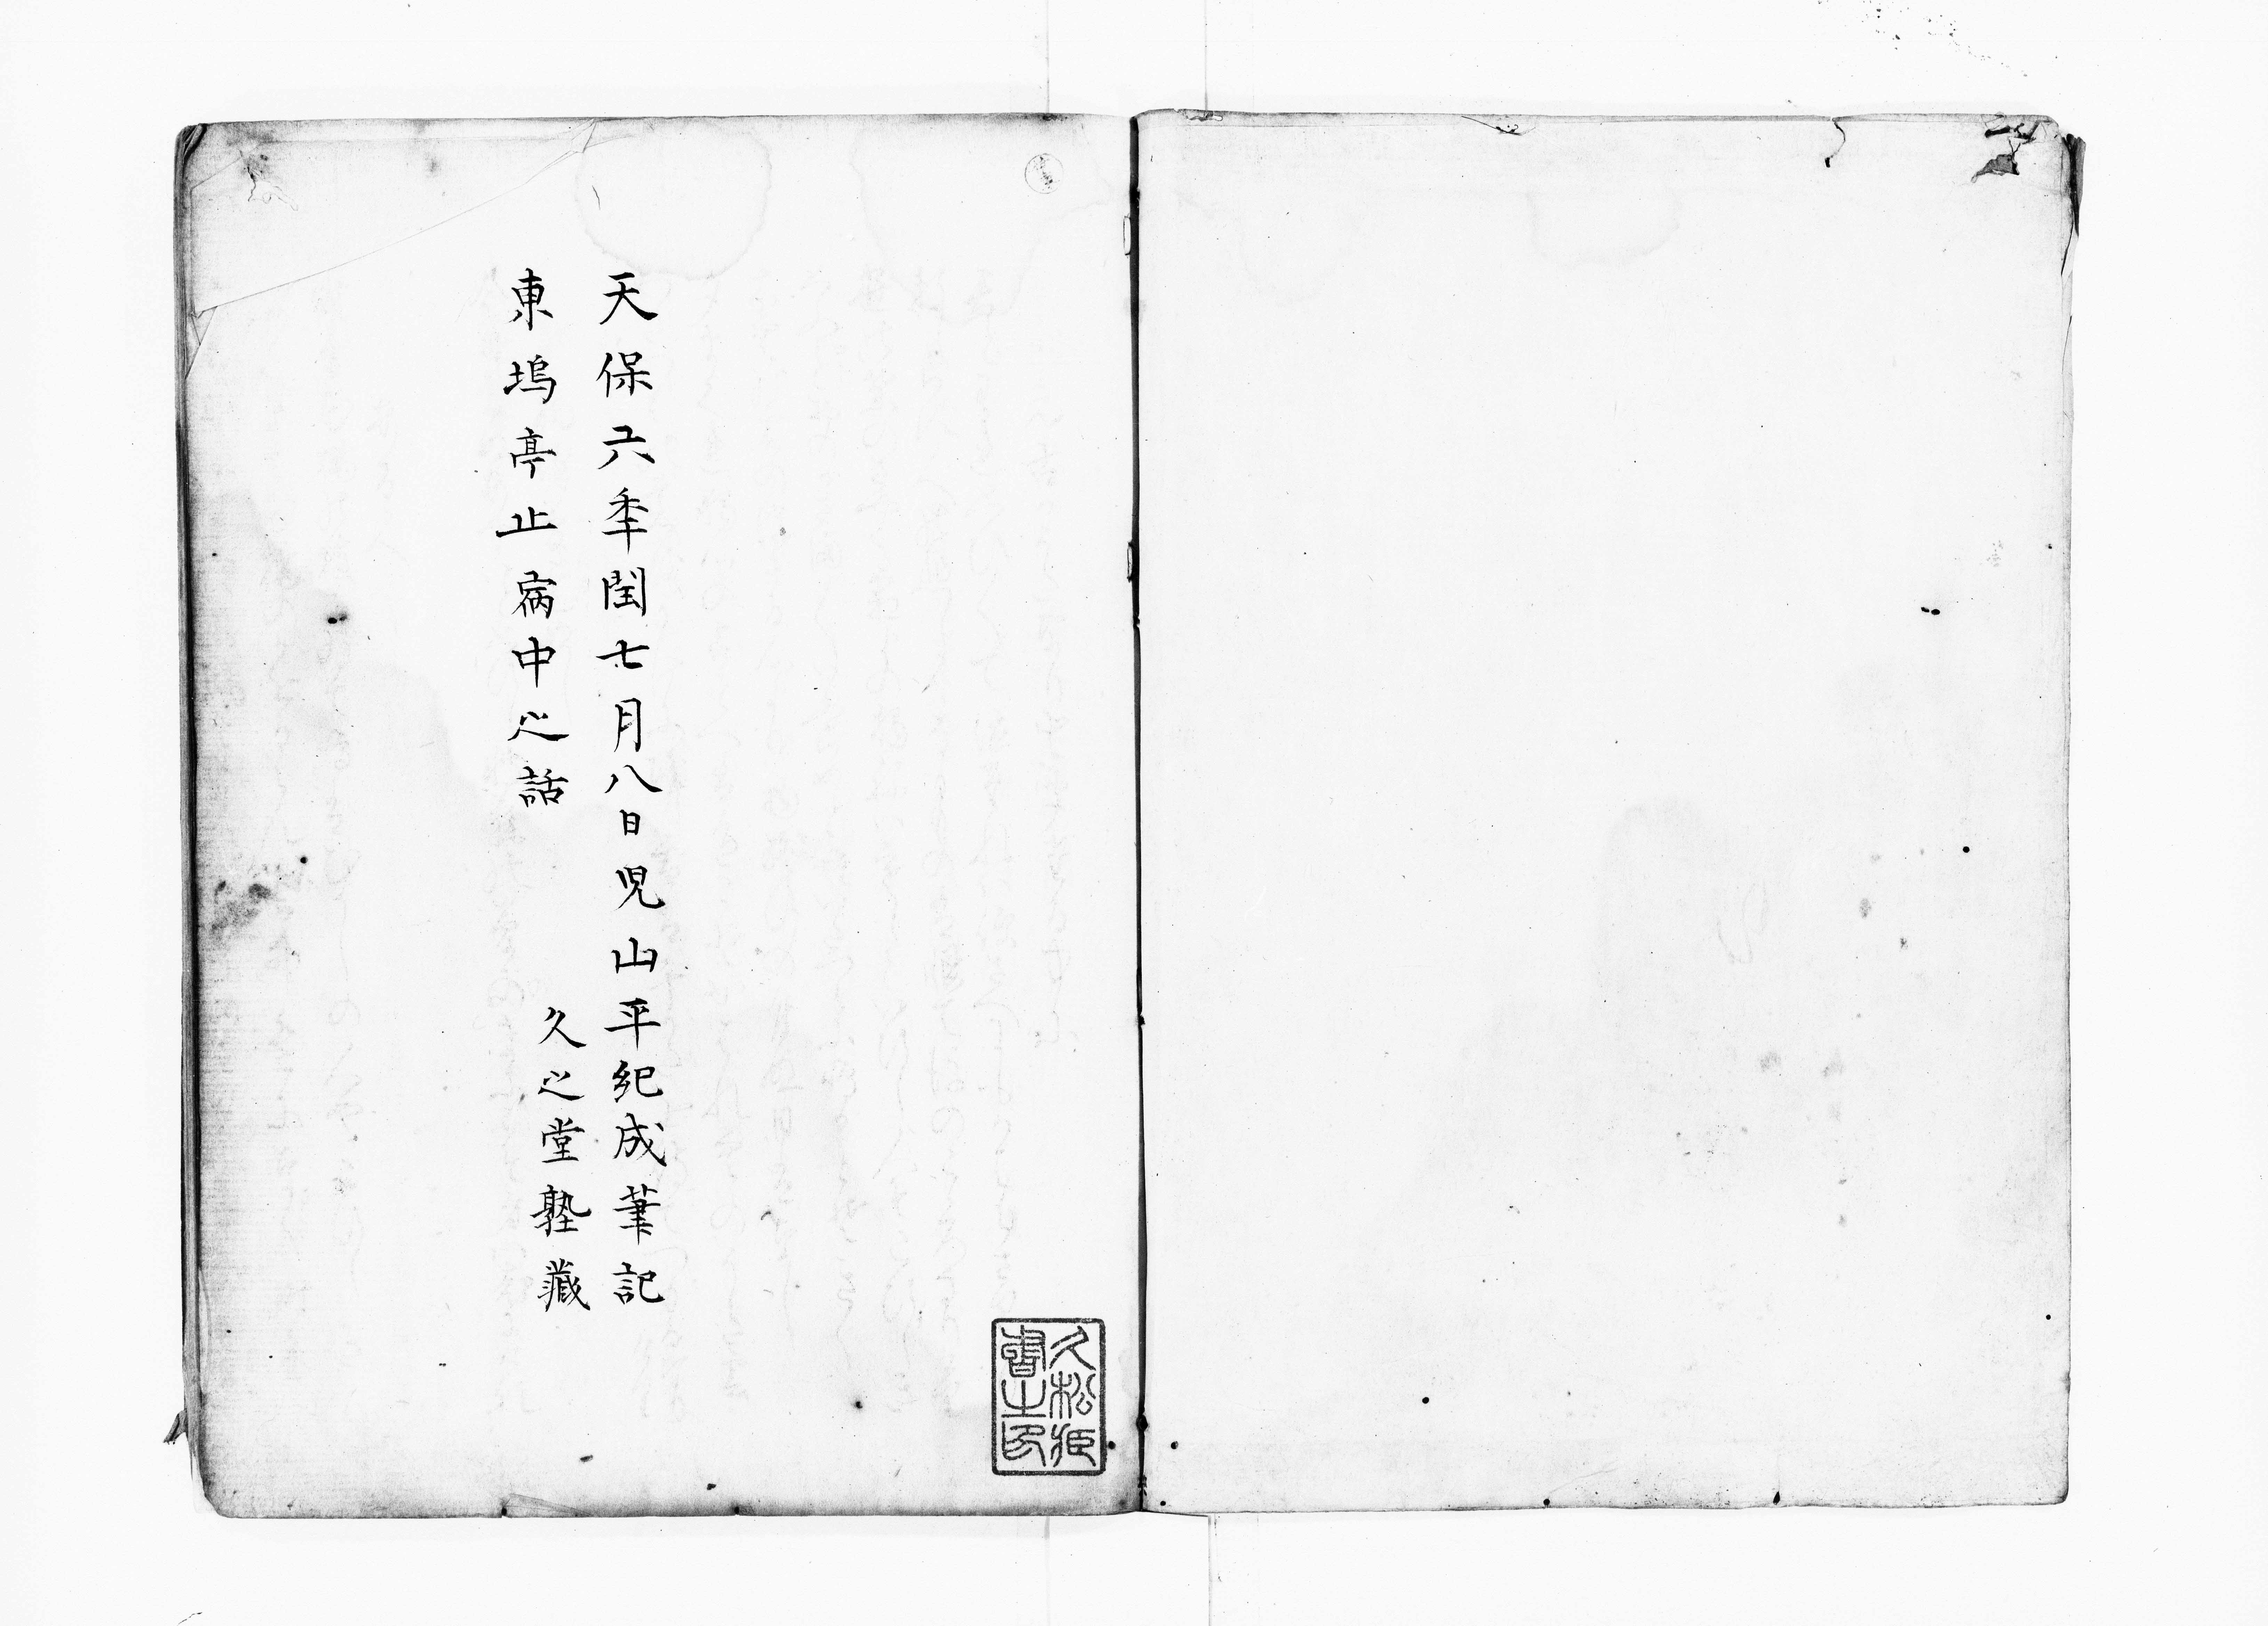 天保六秊閏七月八日児山平紀成筆記
東塢亭止病中之話
久之堂塾藏
久松疟
書之印